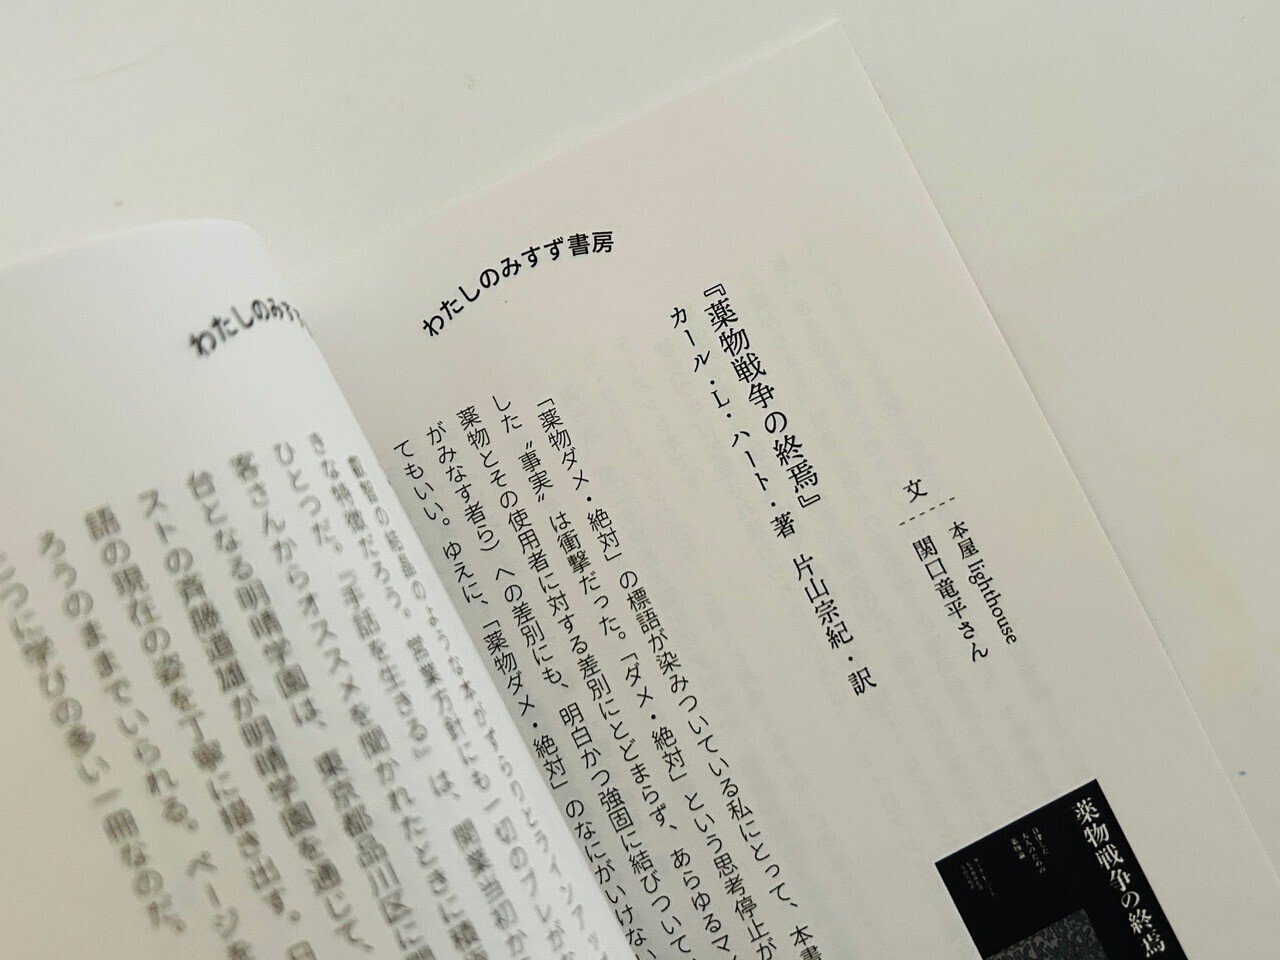 わたしのみすず書房
『薬物戦争の終焉』
カール・L・ハート・著 片山宗紀・訳
文
本屋lighthouse
関口竜平さん
「薬物ダメ・絶対」の標語が染みついている私にとって、本書
した〝事実〟は衝撃だった。「ダメ・絶対」という思考停止が
薬物とその使用者に対する差別にとどまらず、あらゆるマ
がみなす者ら）への差別にも、明白かつ強固に結びついて
てもいい。ゆえに、「薬物ダメ・絶対」のなにがいけない
薬物戦争の終焉
わたしのみす
叡智の結晶のような本がずらりとラインアッ
きな特徴だろう。営業方針にも一切のブレがな
ひとつだ。『手話を生きる』は、開業当初か
客さんからオススメを聞かれたときに積
台となる明晴学園は、東京都品川区に
ストの斉藤道雄が明晴学園を通して、
語の現在の姿を丁寧に描き出す。日
ろうのままでいられる。ページを
つに学びの多い一冊なのだ。